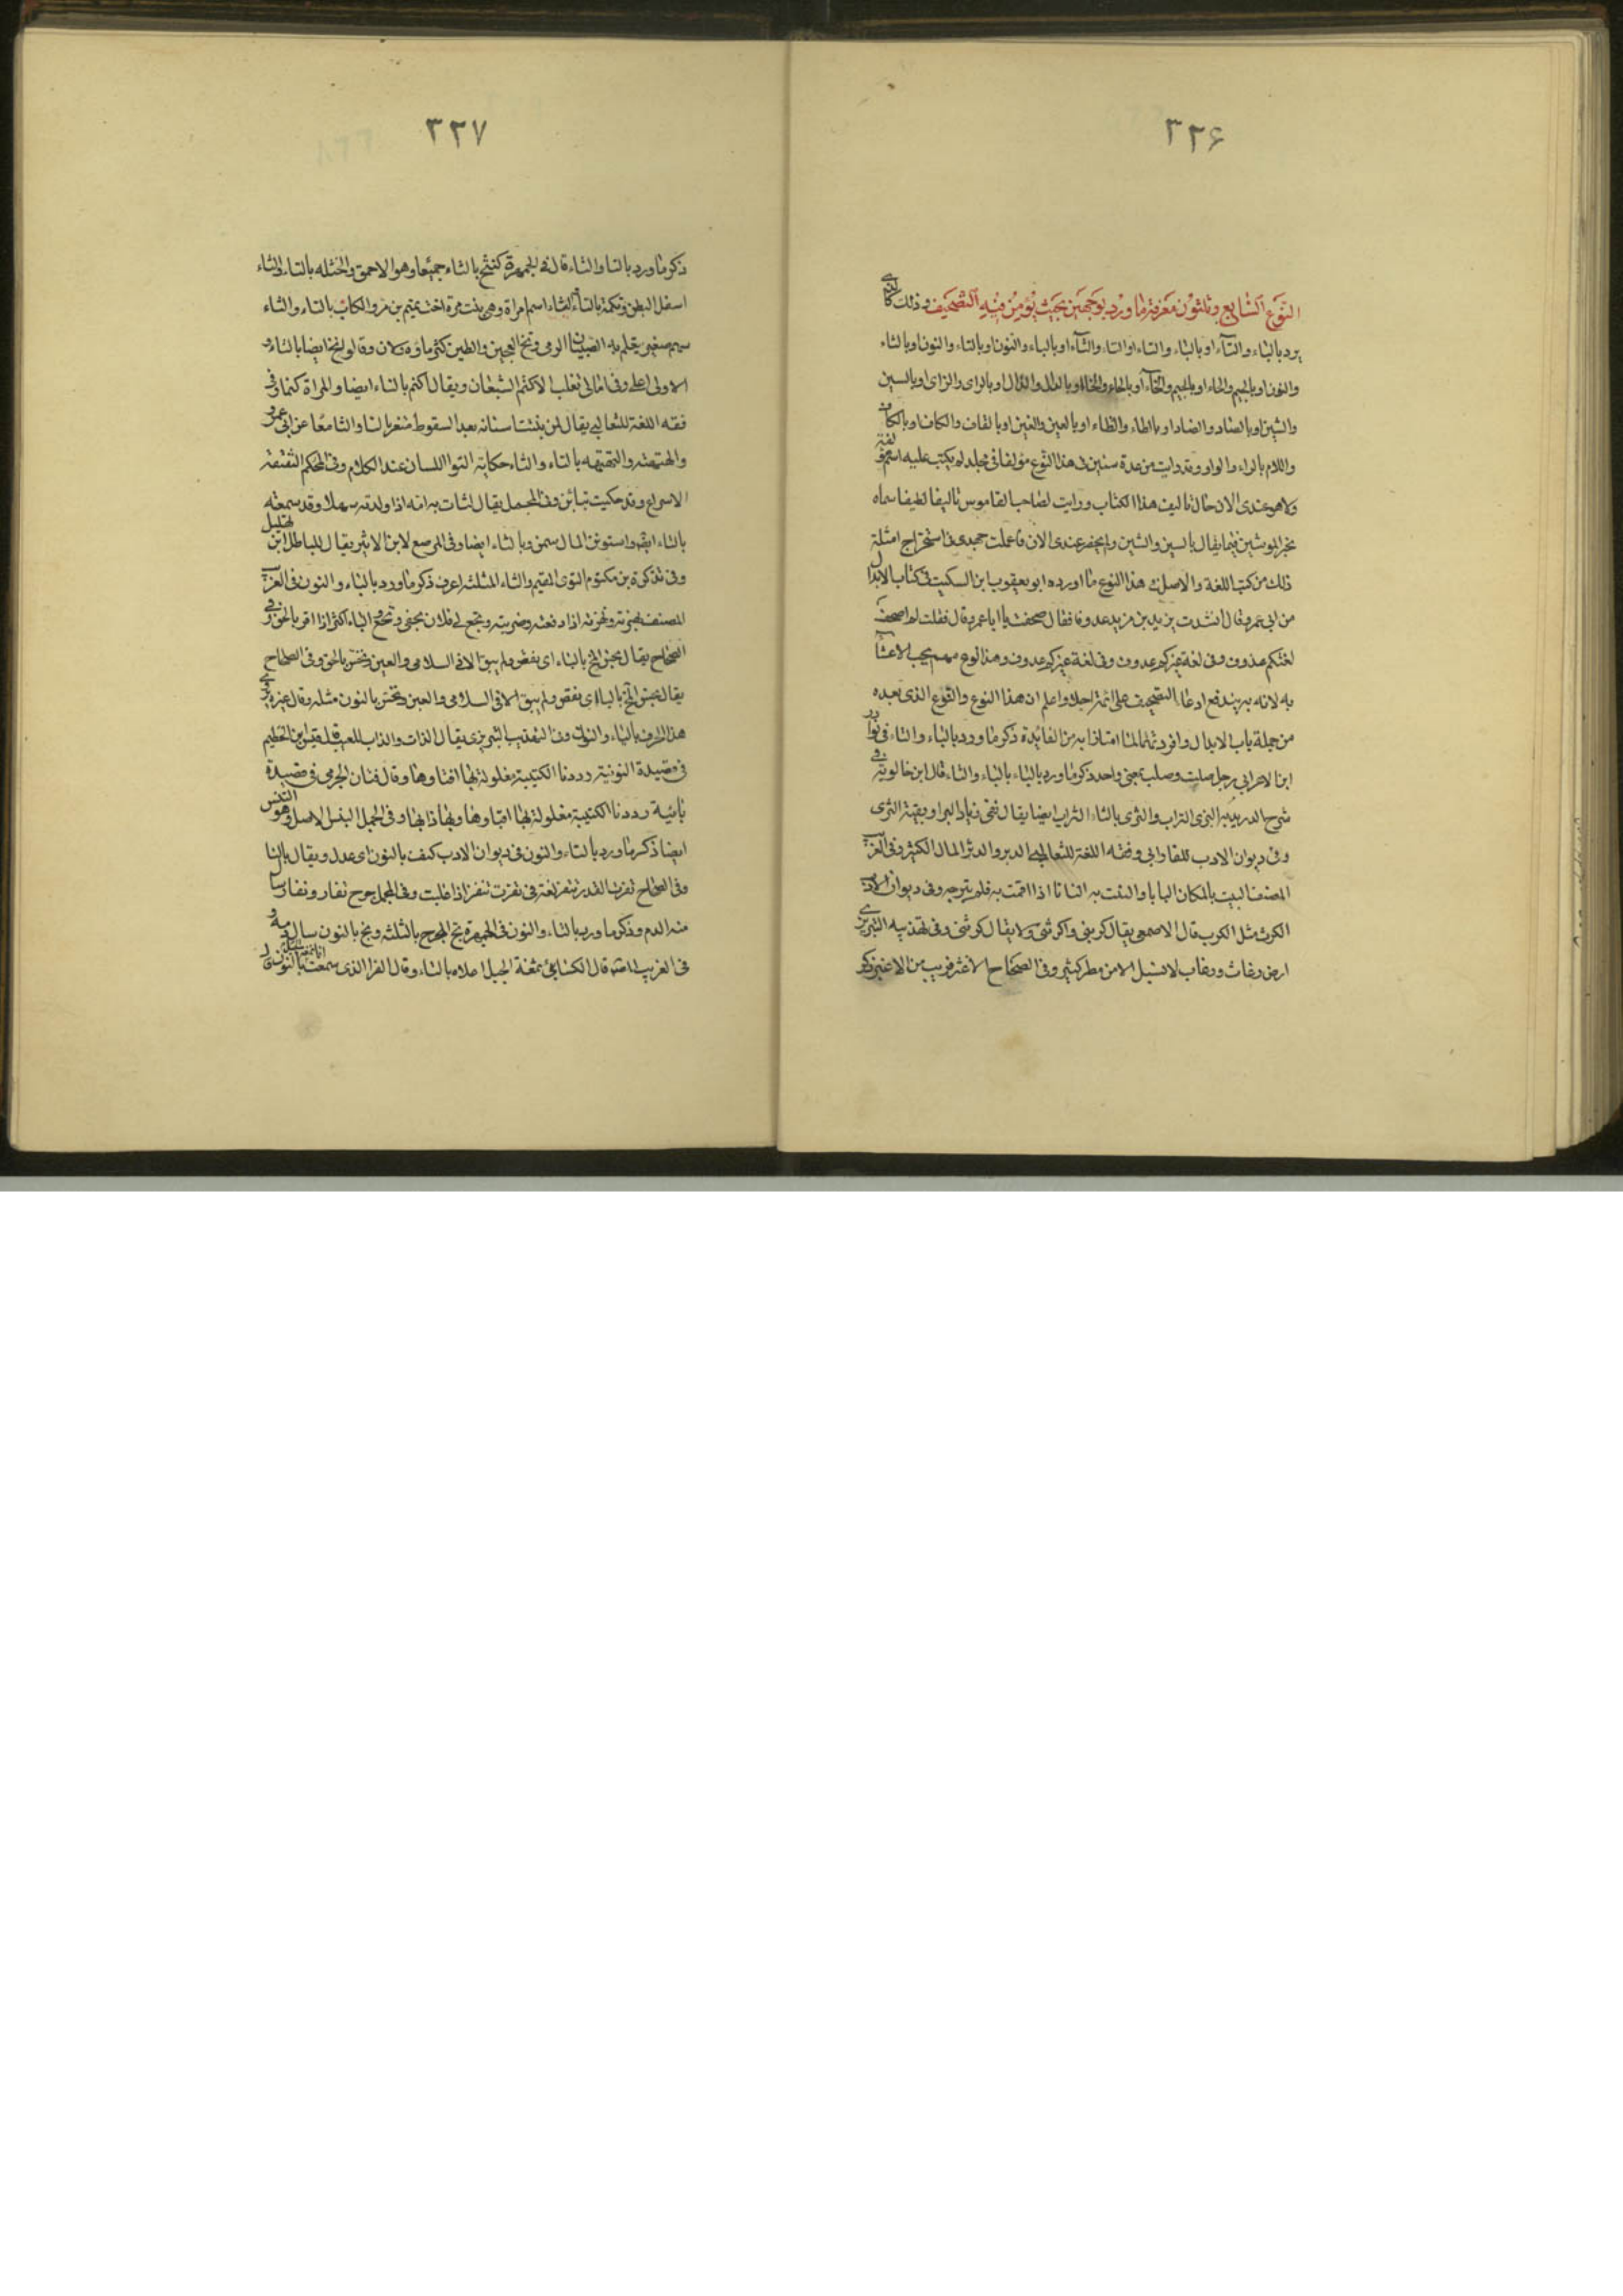 ٣٢۶
النوع السابع وثلثون معرفة ما ورد بوجهين بحيث يؤمن فيه التصحيف وذلك كالذي
يرد بالباء والتاء او بالباء والثاء او التاء والثاء او بالباء والنون او بالتاء والنون او بالثاء
والنون او بالجيم والحاء او بالجيم والخاء او بالحاء والخاء او بالدال والذال او بالراى والزاى او بالسين
والشين او بالصاد والضاد او بالطاء والظاء او بالعين والغين او بالقاف والكاف او بالكاف
واللام بالراء والواو وقد رايت من عدة سنين فى هذا النوع مؤلفا فى مجلد لم يكتب عليه اسم مؤلفه
ولا هو عندى الان حال تاليف هذا الكتاب ورايت لصاحب القاموس تاليفا لطيفا سماه
تحبير الموشين فيما يقال بالسين والشين ولم يحضر عندى الان فاعملت جهدى فى استخراج امثلة
ذلك من كتب اللغة والاصل فى هذا النوع ما اورده ابو يعقوب ابن السكيت فى كتاب الابدال
من ابى عمرو قال انشدت يزيد بن مزيد عدوفا فقال صحفت يا ابا عمرو قال فقلت لم اصحف
لغتكم عذوف وفى لغة غيركم عدوف وهذا نوع مهم يجب الاعتناء
به لانه به يندفع ادعاء التصحيف على ائمة اجلاء واعلم ان هذا النوع والنوع الذى بعده
من جملة باب الابدال وافردتهما لما امتازا به من الفائدة ذكر ما ورد بالباء والتاء فى نوادر
ابن الاعرابى رجل صلت وصلب بمعنى واحد ذكر ما ورد بالباء بالباء والثاء قال ابن خالويه فى
شرح الدريدية البرى التراب والثرى بالثاء التراب ايضا يقال بفى زياد البرا وبفيه الثرى
وفى ديوان الادب للفارابى وفقه اللغة للثعالبى الدبر والدثر المال الكثير وفى الغريب
المصنف البيت بالمكان البابا والثثت به الثاثا اذا اقمت به فلم تبرحه وفى ديوان الادب
الكرث مثل الكرب قال الاصمعى يقال كربنى واكرثنى ولا يقال كرثنى وفى تهذيب التبريزى
ارض رغاث ورغاب لا تسيل الا من مطر كثير وفى الصحاح الاغثر قريب من الاغبر ذكر
٣٢٧
ذكر ما ورد بالتا والثاء قال فى الجمهرة كنثح بالثاء جميعا وهو الاحمق والخثله بالتاء والثاء
اسفل البطن وتكمة بالتاء والثاء اسم امراة وهى بنت مرة اخت تميم بن مر والكتاب بالتاء والثاء
سهم صغير يتعلم به الصبيان الرمى وتخ العجين والطين كثر ماؤه ولان وقالوا ثخ ايضا بالثاء و
الاولى اعلى وفى امالى ثعلب الاكثم الشبعان ويقال اكتم بالتاء ايضا والمراة كثما وفى
فقه اللغة للثعالبى يقال لمن نبتت اسنانه بعد السقوط مثغر بالتا والثا معا عن ابى عمرو
والهتهته والثهثهه بالتاء والثاء حكاية التواء اللسان عند الكلام وفى المحكم الثقثقه
الاسراع وقد حكيت بتائين وفى المجمل يقال لتات به امه اذا ولدته سهلا وقد سمعته
بالثاء ايضا واستوتن المال سمن وبالثاء ايضا وفى المرصع لابن الاثير يقال للباطل ابن تهلل
وفى تذكرة بن مكتوم التوى المقيم والثاء المثلثة اعرف ذكر ما ورد بالباء والنون فى الغريب
المصنف لهزته ونهزته اذا دفعته وضربته وبخع لى فلان بحقى ونخع بالباء اكثر اذا اقر بالحق وفى
الصحاح يقال بخس المخ بالباء اى نقص ولم يبق الا فى السلامى والعين ونخس بالحق وفى الصحاح
يقال بخس المخ بالباء اى نقص ولم يبق الا فى السلامى والعين ونخس بالنون مثله وقال غيره يروى
هذا الحرف بالباء والنون وفى التهذيب التبريزى يقال الذان والذاب للعيب قال قيس ابن الخطيم
فى قصيدة النونية رددنا الكتيبة مفلولة بها افنها وذانها وقال فنان الجرمى فى قصيدة
بائية رددنا الكتيبة مفلولة بها افنها وبها ذابها وفى المجمل البنس الاصل وهو القنس
ايضا ذكر ما ورد بالتاء والنون فى ديوان الادب كتف بالنون اى عدل ويقال بالتا
وفى الصحاح تغرت القدر تتغر لغة فى نغرت تنغر اذا غلت وفى المجمل جرح تغار ونغار سال
منه الدم وذكر ما ورد بالثاء والنون فى الجمهرة ثج الجرح بالثلثه ونج بالنون سال دمه و
فى الغريب المصنف قال الكسائى ثمغة الجبل اعلاه بالثاء وقال الفرا الذى سمعت انا نمغة الجبل بالنون